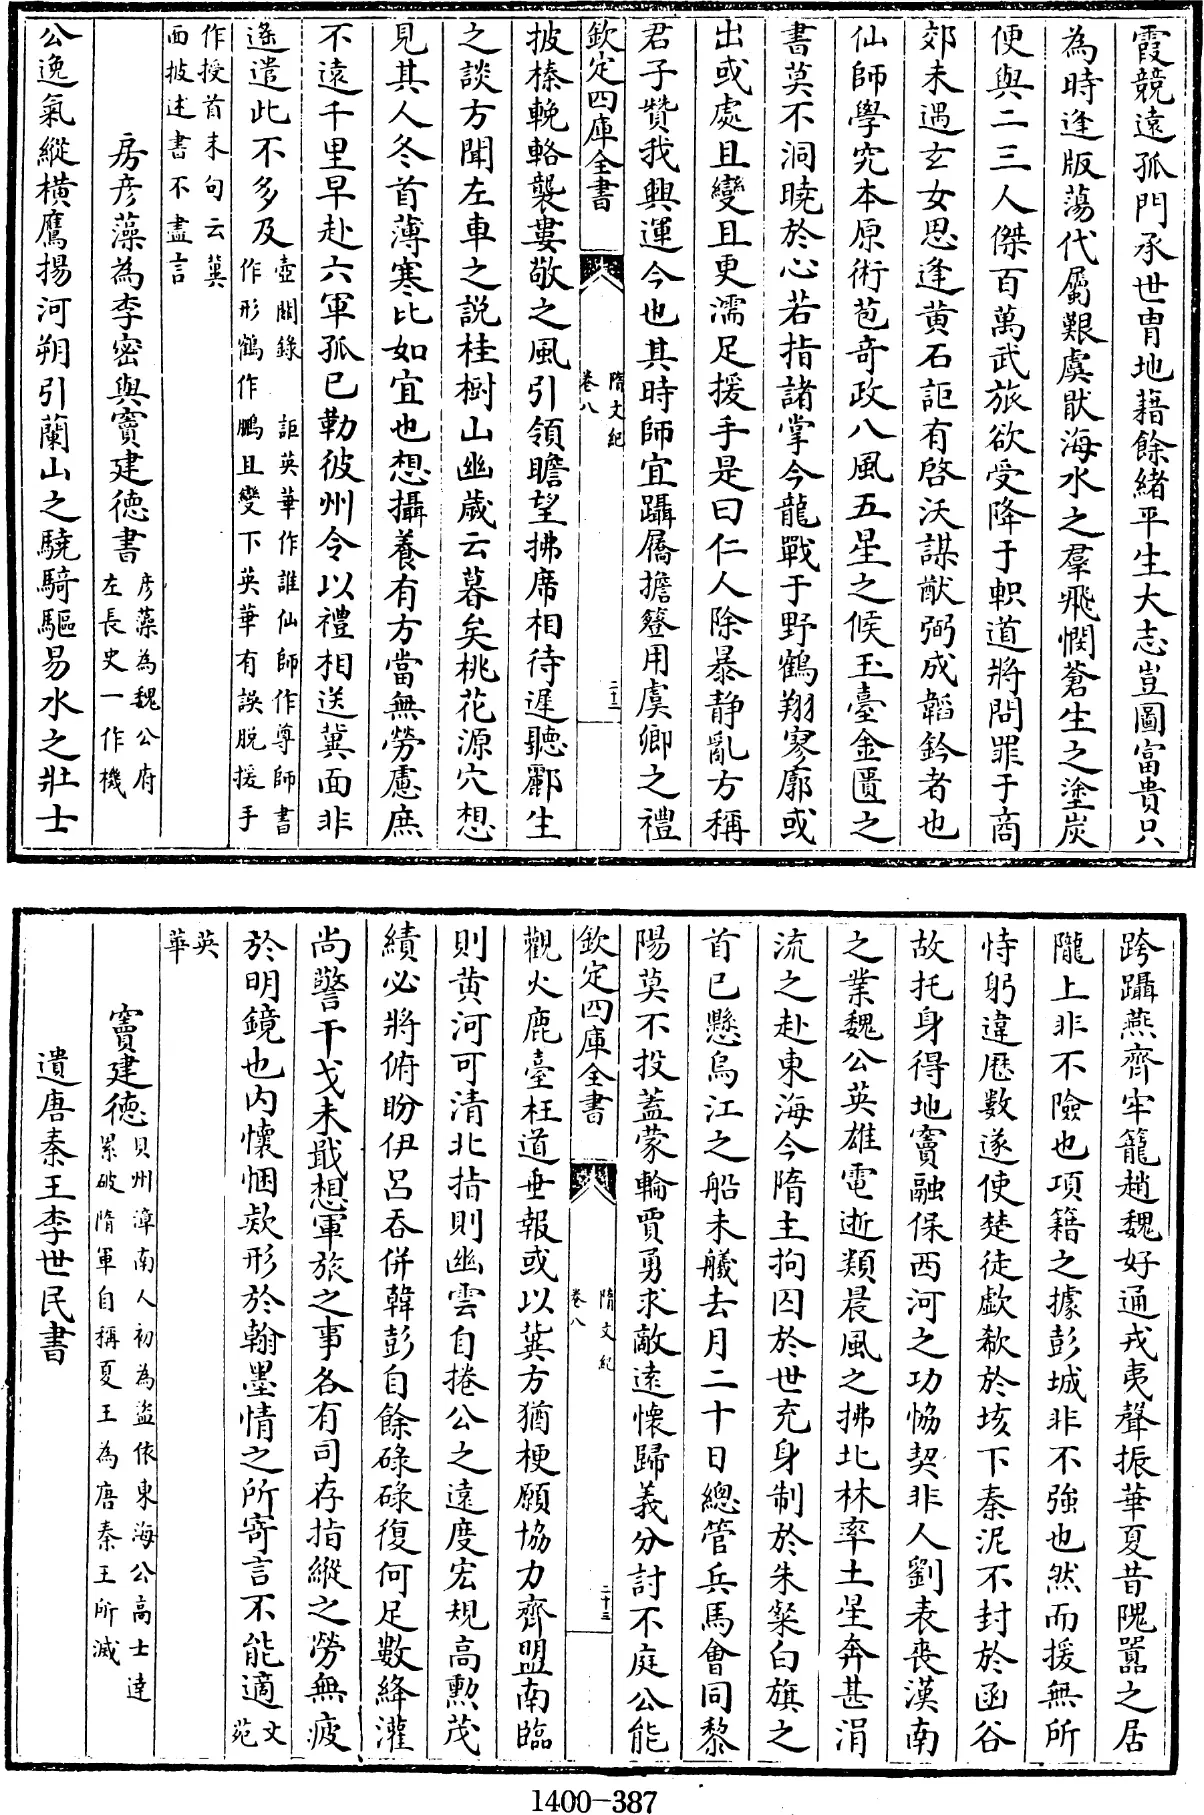 霞競遠孤門承世胄地藉餘緒平生大志豈圖富貴只
為時逢版蕩代屬艱虞猒海水之羣飛憫蒼生之塗炭
便與二三人傑百萬武旅欲受降于軹道將問罪于商
郊未遇玄女思逢黄石詎有啓沃謀猷弼成韜鈐者也
仙師學究本原術苞奇政八風五星之候玉臺金匱之
書莫不洞曉於心若指諸掌今龍戰于野鶴翔寥廓或
出或處且變且更濡足援手是曰仁人除暴静亂方稱
君子贊我興運今也其時師宜躡屩擔簦用虞卿之禮
欽定四庫全書
隋文紀
卷八
二十二
披榛輓輅襲婁敬之風引領瞻望拂席相待遲聽酈生
之談方聞左車之説桂樹山幽歲云暮矣桃花源穴想
見其人冬首薄寒比如宜也想攝養有方當無勞慮庶
不遠千里早赴六軍孤已勒彼州令以禮相送冀面非
遥遣此不多及
壺關錄 詎英華作誰仙師作尊師書
作形鶴作鵬且變下英華有誤脱援手
作授首末句云冀
面披述書不盡言
房彦藻為李密與竇建德書
彦藻為魏公府
左長史一作機
公逸氣縱横鷹揚河朔引蘭山之驍騎驅易水之壯士
跨躡燕齊牢籠趙魏好通戎夷聲振華夏昔隗囂之居
隴上非不險也項籍之據彭城非不強也然而援無所
恃躬違厯數遂使楚徒歔欷於垓下秦泥不封於函谷
故托身得地竇融保西河之功恊契非人劉表喪漢南
之業魏公英雄電逝類晨風之拂北林率土星奔甚涓
流之赴東海今隋主拘囚於世充身制於朱粲白旗之
首已懸烏江之船未艤去月二十日總管兵馬會同黎
陽莫不投蓋蒙輪賈勇求敵遠懷歸義分討不庭公能
欽定四庫全書
隋文紀
卷八
二十三
觀火鹿臺枉道垂報或以冀方猶梗願協力齊盟南臨
則黄河可清北指則幽雲自捲公之遠度宏規高勲茂
績必將俯盼伊呂吞併韓彭自餘碌碌復何足數絳灌
尚警干戈未戢想軍旅之事各有司存指縱之勞無疲
於明鏡也内懷悃欵形於翰墨情之所寄言不能適
文苑
英華
竇建德
貝州漳南人初為盗依東海公高士逹
累破隋軍自稱夏王為唐秦王所滅
遺唐秦王李世民書
1400-387